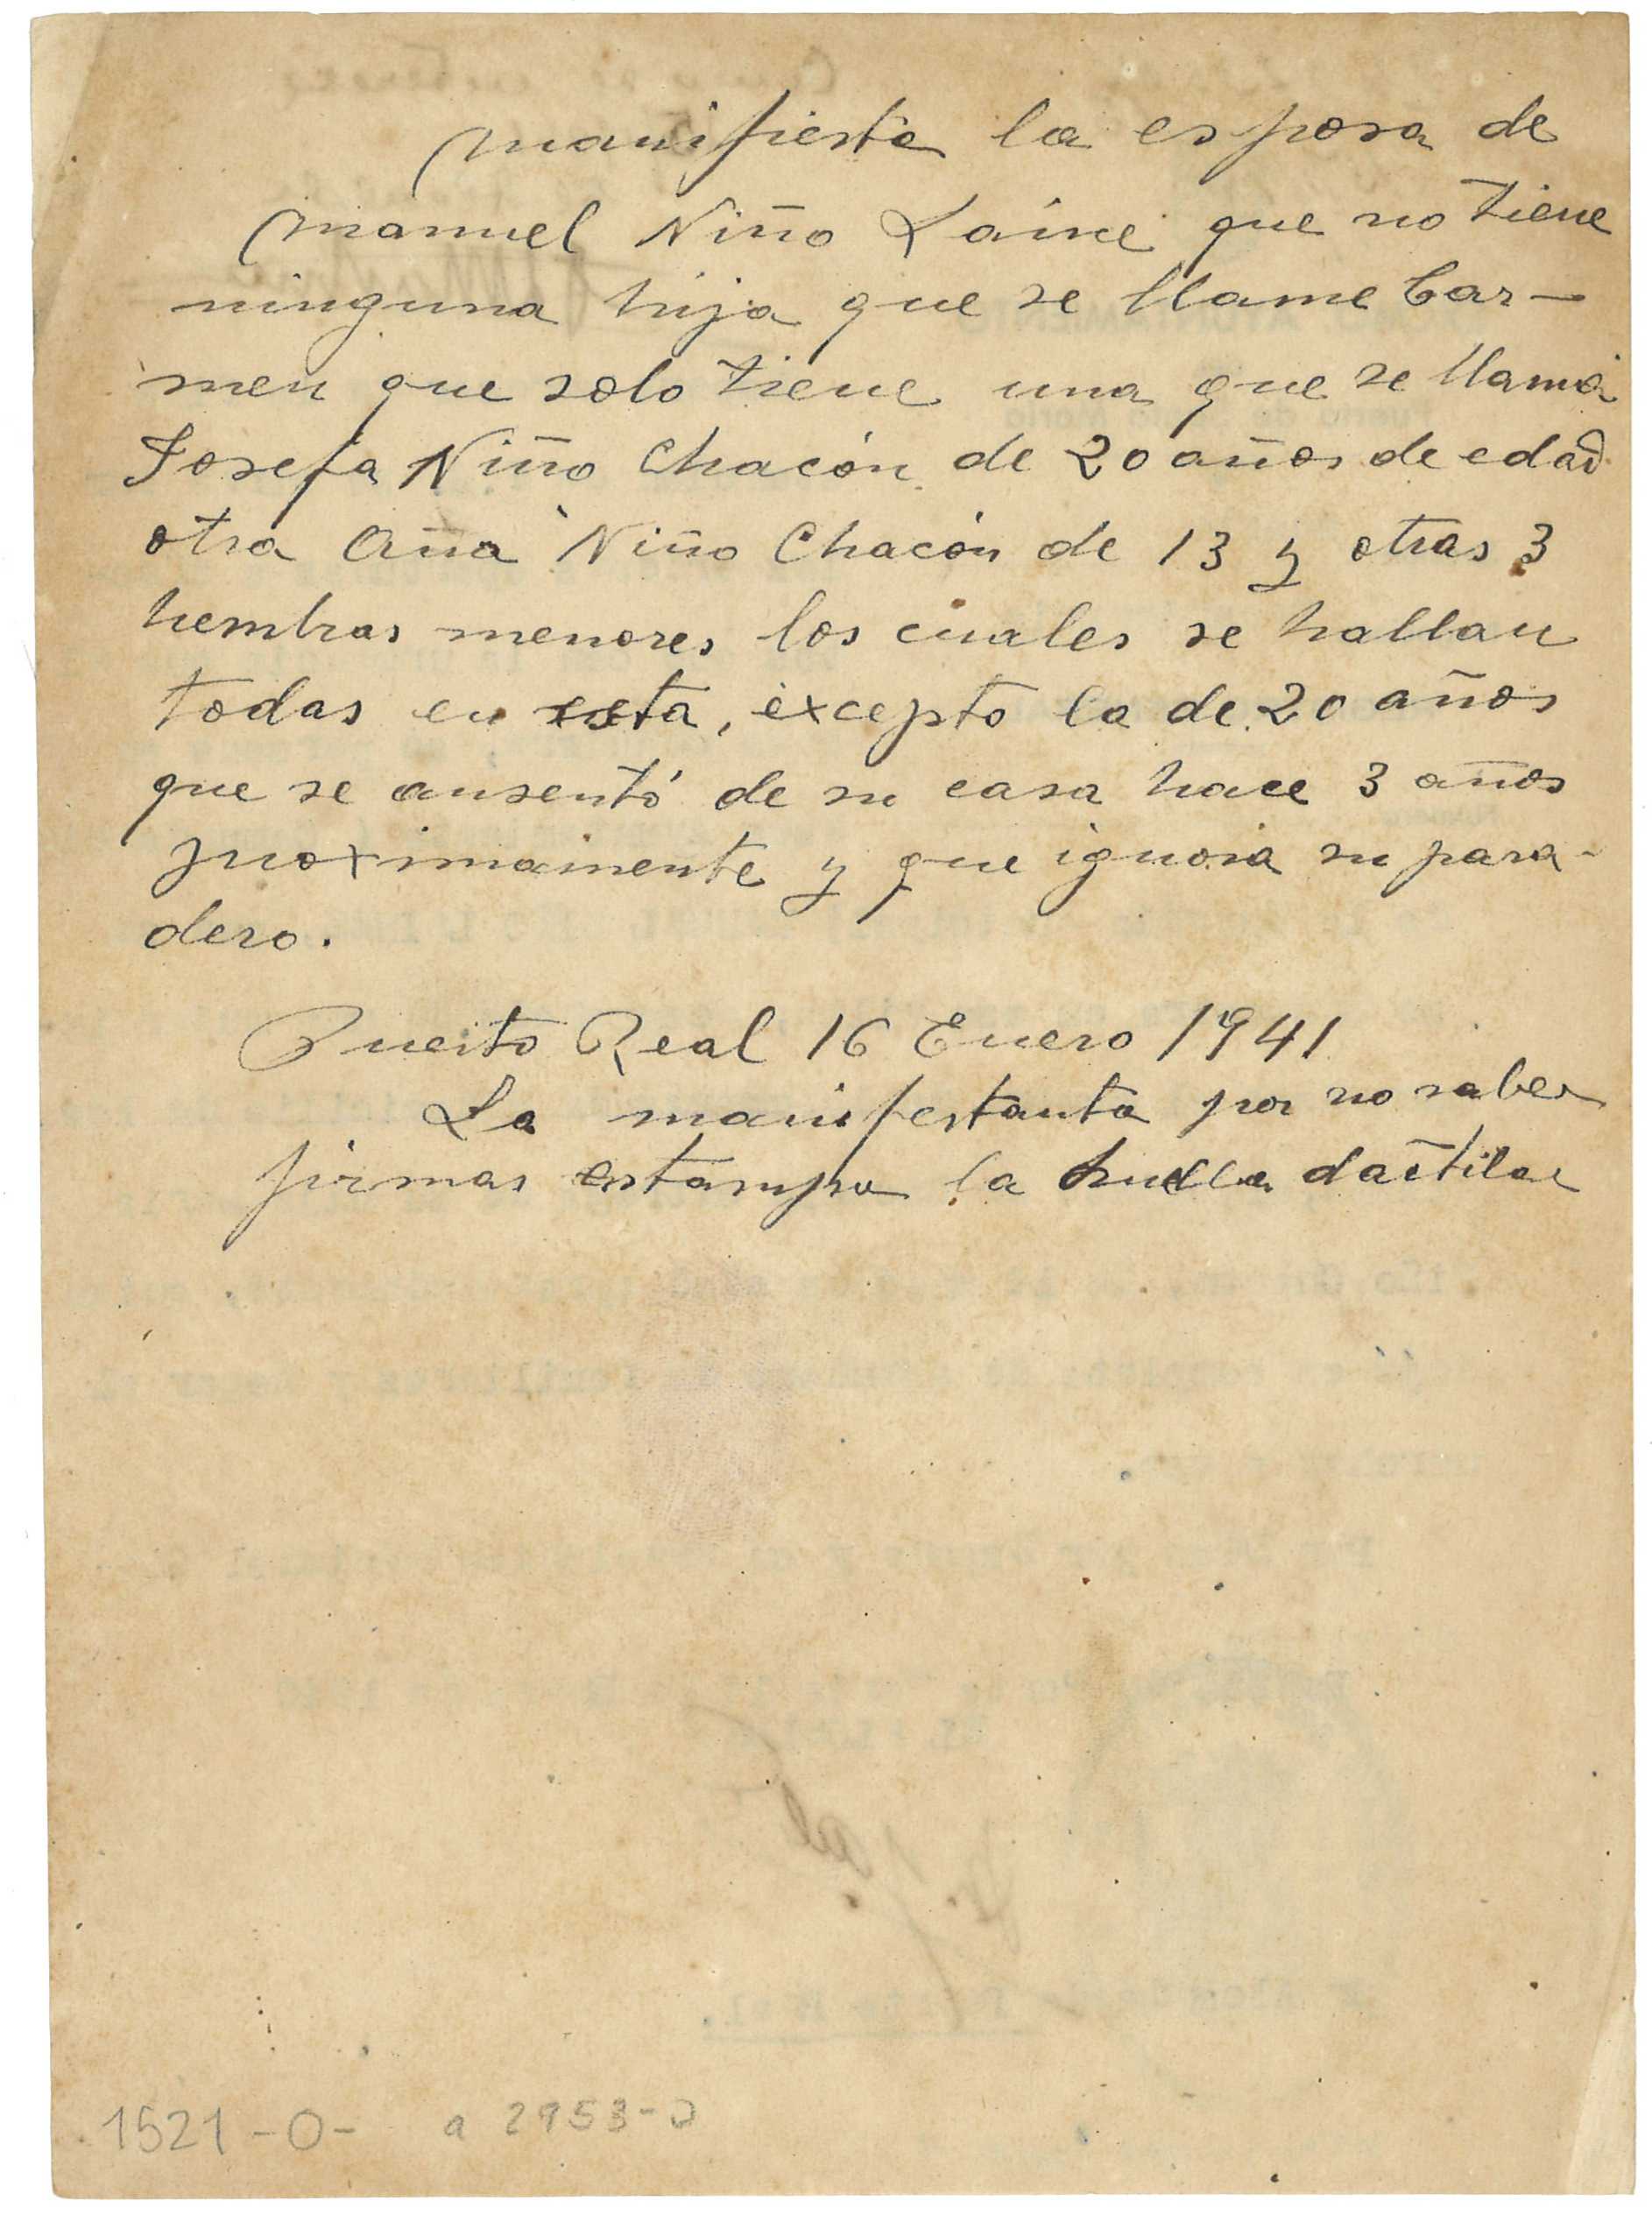 Manifiesta la esposa de
Manuel Niño Laine que no tiene
ninguna hija que se llame Car-
men que solo tiene una que se llama
Josefa Niño Chacón de 20 años de edad
otra Ana Niño Chacón de 13 y otras 3
hembras menores los cuales se hallan
todas en esta, excepto la de 20 años
que se ausentó de su casa hace 3 años
proximamente y que ignora su para-
dero.
Puerto Real 16 Enero 1941
La manifestanta por no saber
firmar estampa la huella dactilar
1521-0- a 2953-0